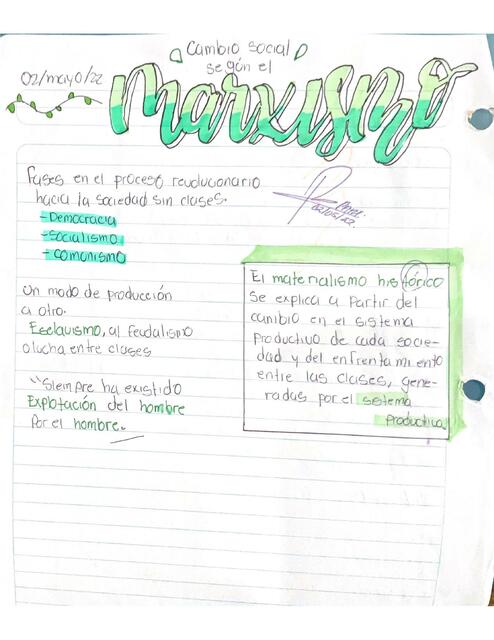 Cambio social
según el
02/mayo/22
marxismo
Fases en el proceso revolucionario
hacia la sociedad sin clases.
-Democracia
-socialismo
-comonismo
Un modo de producción
a otro.
Esclavismo, al feudalismo
o lucha entre clases
"Siempre ha existido
Explotación del hombre
Por el hombre.
El materialismo histórico
Se explica a partir del
cambio en el sistema
Productivo de cada socie-
dad y del enfrentamiento
entre las clases, gene-
radas por el sistema
Productivo